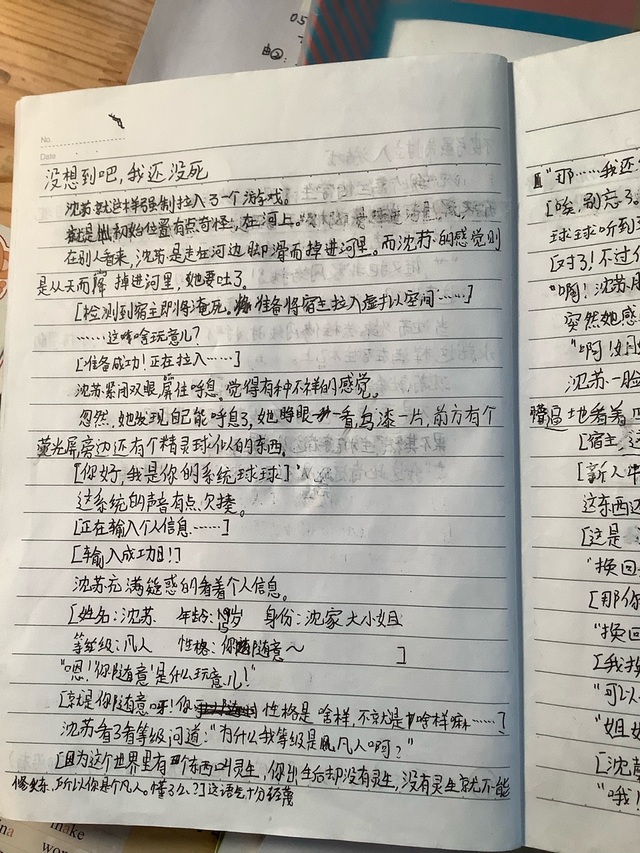 05
No.
Date
没想到吧，我还没死
沈苏就这样强制拉入了一个游戏。
就是出初始位置有点奇怪，在河上。
在别人看来，沈苏是走在河边脚滑而掉进河里。而沈苏的感觉则
是从天而降 掉进河里，她要吐了。
[检测到宿主即将淹死。准备将宿主拉入虚拟空间……]
……这啥玩意儿？
[准备成功！正在拉入……]
沈苏紧闭双眼屏住呼息。觉得有种不祥的感觉。
忽然，她发现自己能呼息了，她睁眼一看，乌漆一片，前方有个
萤光屏旁边还有个精灵球似的东西。
[你好，我是你的系统球球]
这系统的声音有点欠揍。
[正在输入个人信息……]
[输入成功！]
沈苏充满疑惑的看着个人信息。
[姓名：沈苏 年龄：19岁 身份：沈家大小姐
等级：凡人 性格：你随意～ ]
"嗯！'你随意'是什么玩意儿！"
[就是你随意呀！你 性格是啥样，不就是啥样嘛……]
沈苏看了看等级问道："为什么我等级是凡人啊？"
[因为这个世界里有个东西叫灵生，你出生后却没有灵生，没有灵生就不能
修炼，所以你是个凡人。懂了么？]这语气十分轻蔑
"那……我还
[唉，别忘了。
球球听到
[对了！不过
"啊！沈苏
突然她感
"啊！
沈苏一脸
懵逼地看着
[宿主，这
[新人
这东西还
[这是
"换回
[那你
"换回
[我
"可以
"姐
[沈
"哦！
make